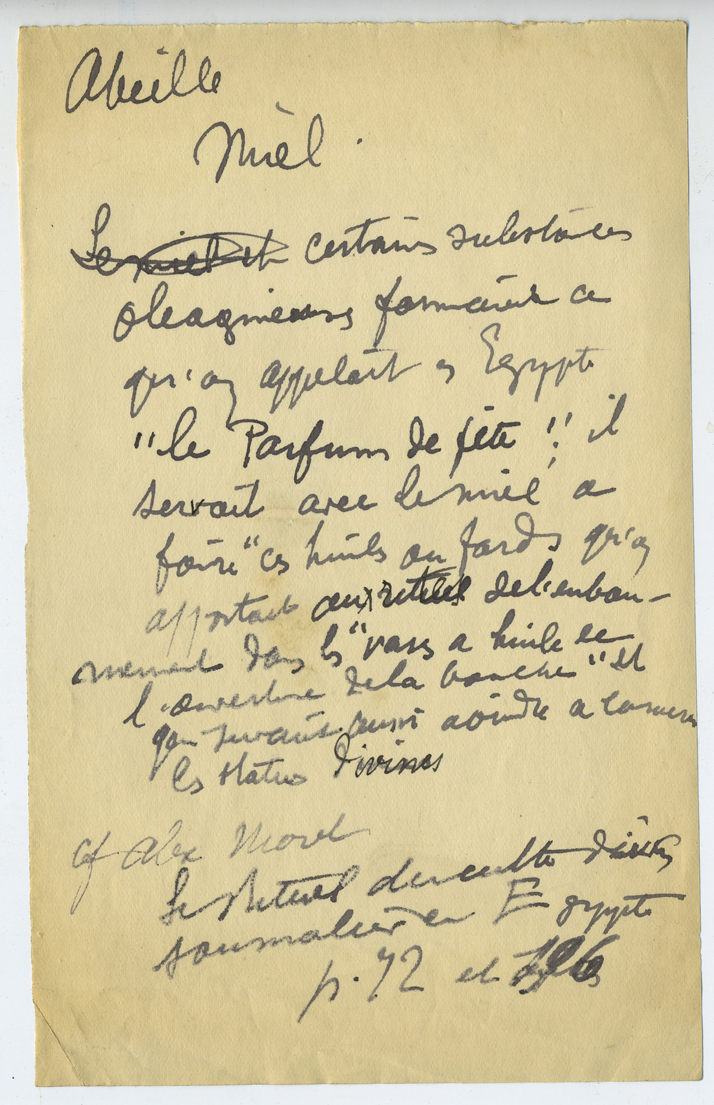 Abeille
Miel.
Le miel et certaines substances
oleagineuses formaient ce
qu'on appelait en Egypte
"le Parfum de fête"; il
servait avec le miel a
faire "ces huiles ou fards qu'on
apportait aux rituels de l'embau-
mement dans les "vases a huile de
l'ouverture de la bouche" et
qui servait aussi a oindre a
les statues divines
cf Alex Moret
Le Rituel du culte divin
journalier en Egypte
p. 72 et 196